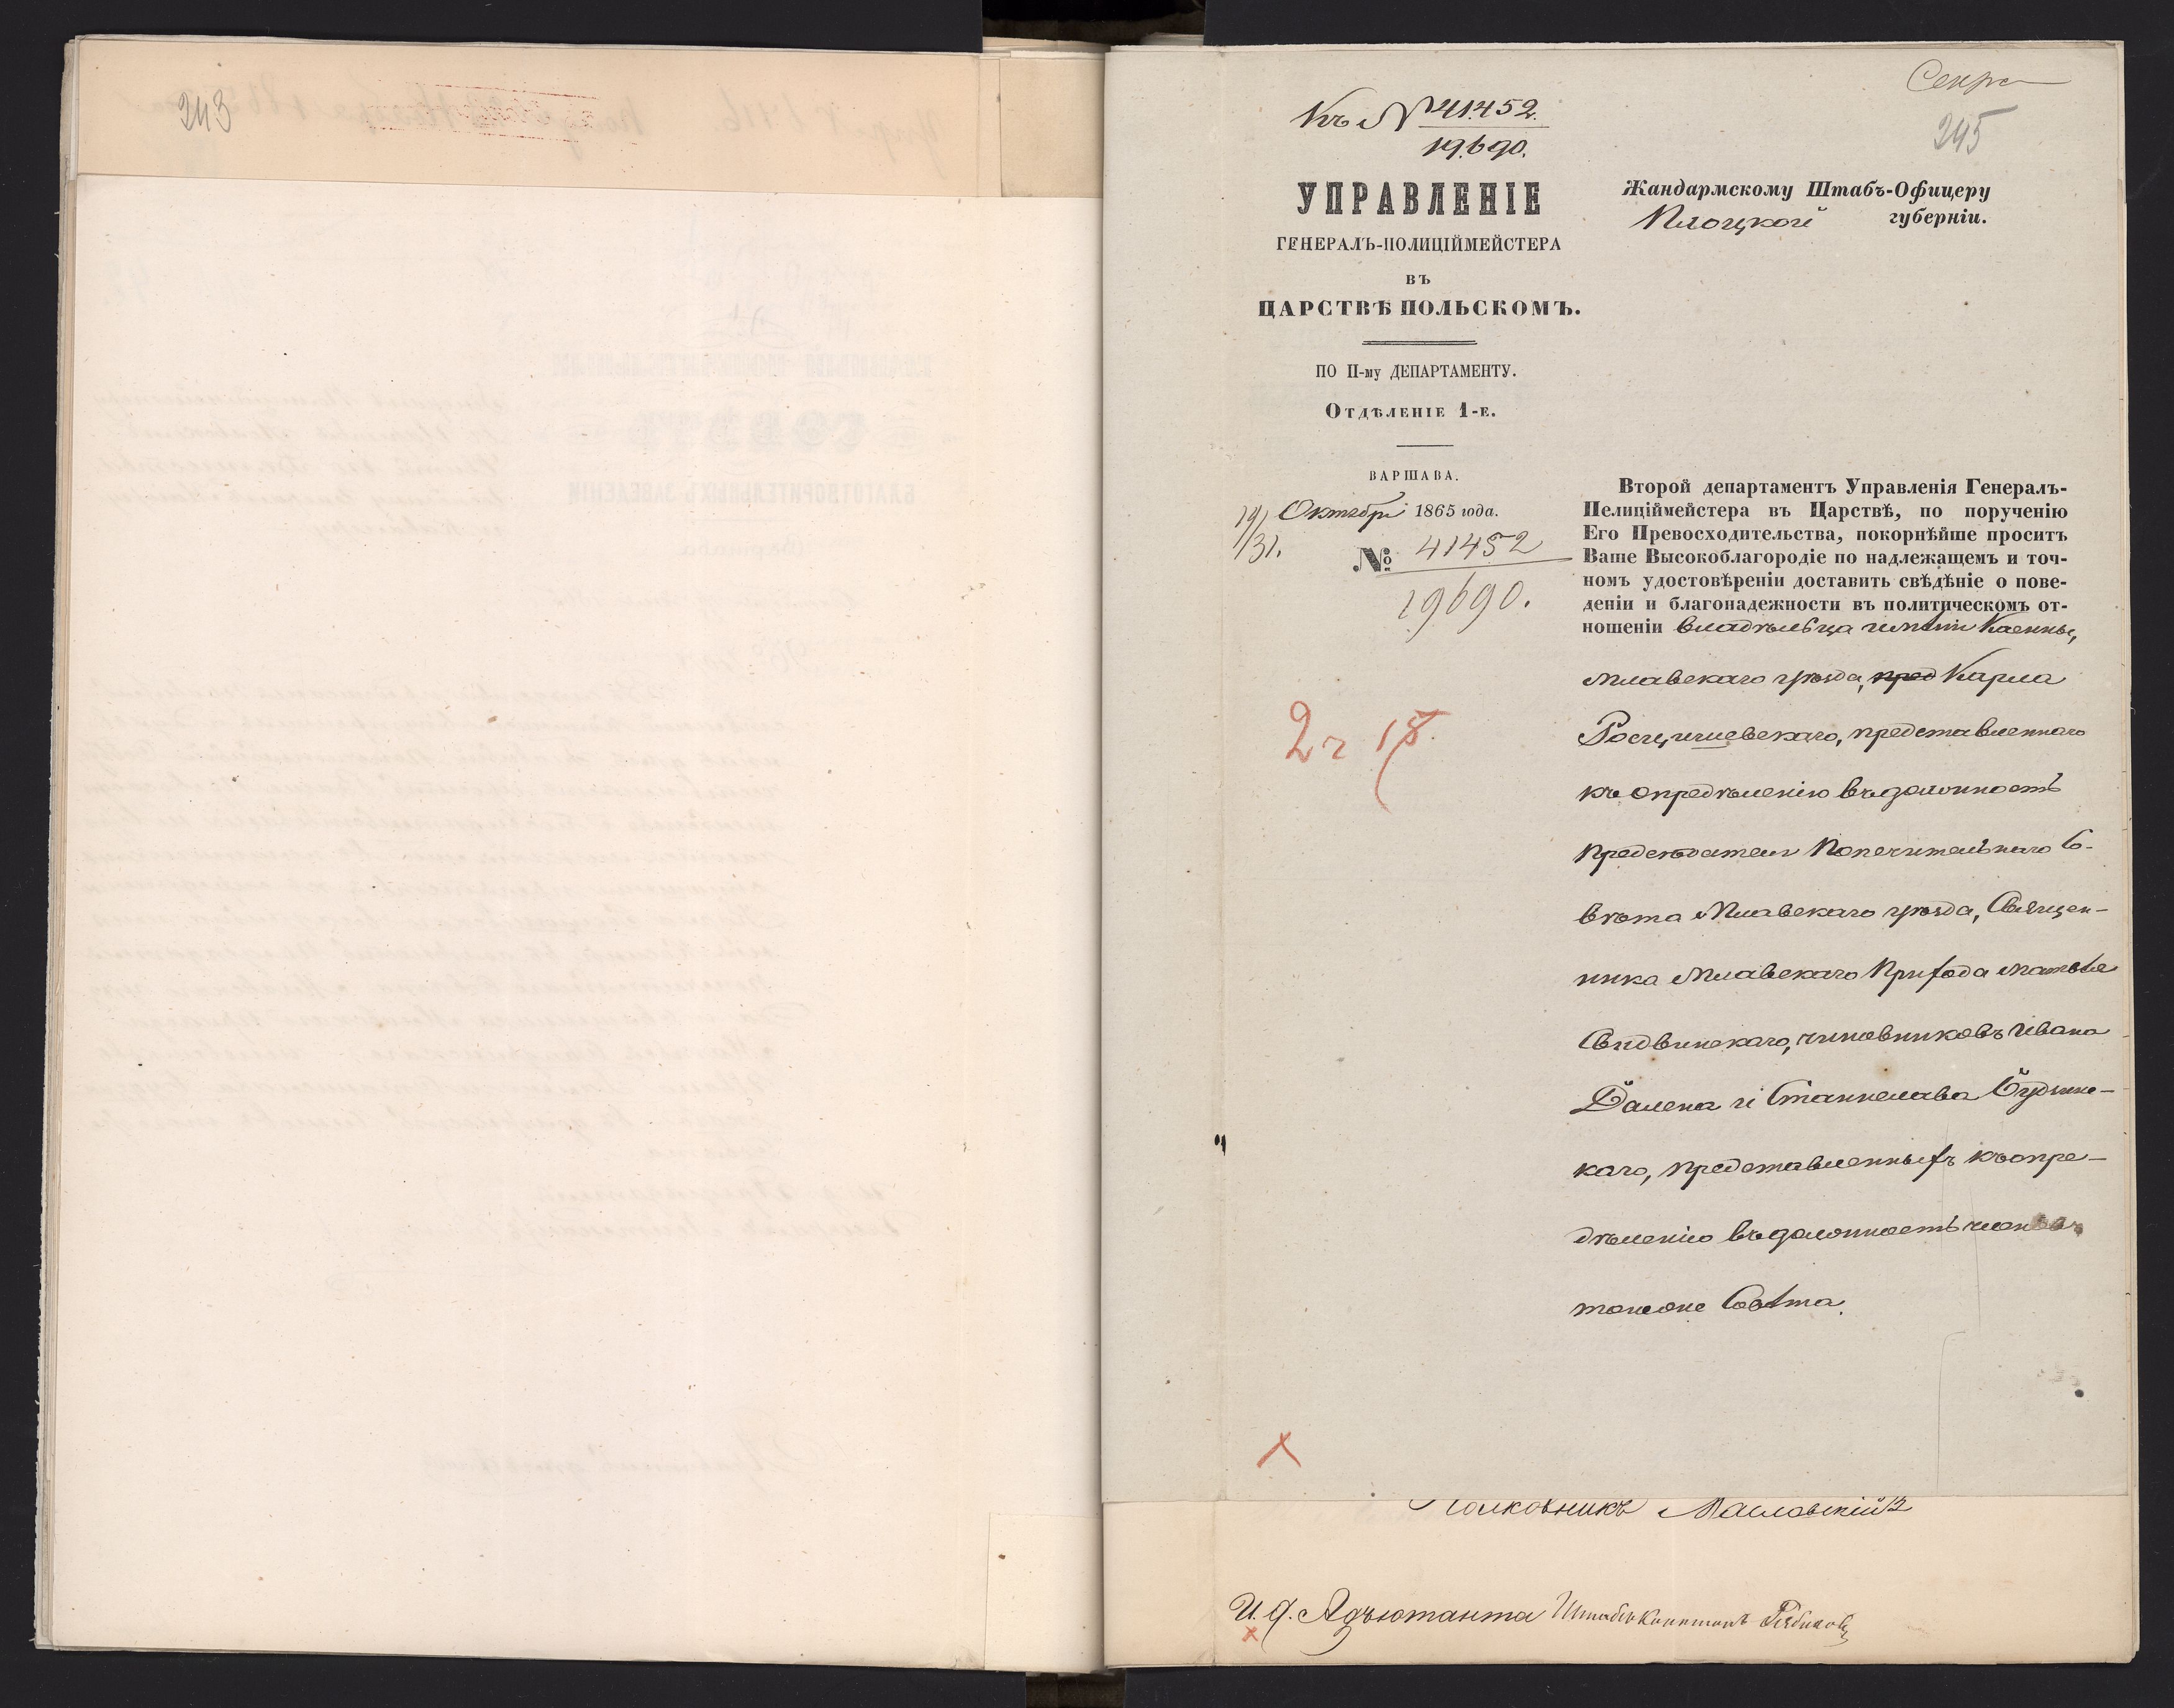 243
Секр
245
Къ № 41452.
19690.
УПРАВЛЕНІЕ
ГЕНЕРАЛЪ-ПОЛИЦІЙМЕЙСТЕРА
ВЪ
ЦАРСТВѢ ПОЛЬСКОМЪ.
ПО II-му ДЕПАРТАМЕНТУ.
Отдѣленіе 1-е.
ВАРШАВА.
19/31. Октября 1865 года.
№ 41452
19690.
2 ч 15.
Жандармскому Штабъ-Офицеру
Плоцкой губерніи.
Второй департаментъ Управленія Генералъ-
Пелиціймейстера въ Царствѣ, по порученію
Его Превосходительства, покорнѣйше проситъ
Ваше Высокоблагородіе по надлежащемъ и точ-
номъ удостовѣреніи доставить свѣдѣніе о пове-
деніи и благонадежности въ политическомъ от-
ношеніи владѣльца имѣнія
Млавскаго уѣзда, пред Карла
Росцишевскаго, представленнаго
къ опредѣленію въ должность
Предсѣдателя Попечительнаго Со-
вѣта Млавскаго уѣзда, Священ-
ника Млавскаго Прихода Матвѣя
Свидвинскаго, чиновниковъ Ивана
и Станислава
каго, представленныхъ къ опре-
дѣленію въ должность членовъ
тогоже Совѣта.
Полковникъ Масловскій 2
И. д. Адъютанта Штабсъ Капитанъ